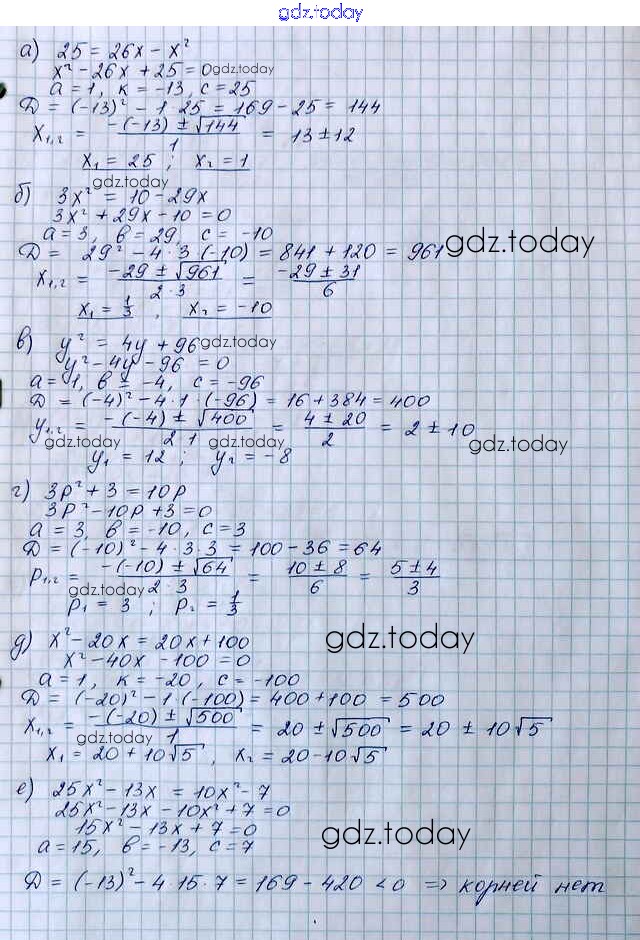 gdz.today
а) 25 = 26x - x²
x² - 26x + 25 = 0 gdz.today
a = 1, к = -13, c = 25
D = (-13)² - 1·25 = 169 - 25 = 144
x₁,₂ = (-(-13) ± √144)/1 = 13 ± 12
x₁ = 25 ; x₂ = 1
gdz.today
б) 3x² = 10 - 29x
3x² + 29x - 10 = 0
a = 3, в = 29, c = -10
D = 29² - 4·3·(-10) = 841 + 120 = 961 gdz.today
x₁,₂ = (-29 ± √961)/(2·3) = (-29 ± 31)/6
x₁ = 1/3 , x₂ = -10
в) y² = 4y + 96 gdz.today
y² - 4y - 96 = 0
a = 1, в = -4, c = -96
D = (-4)² - 4·1·(-96) = 16 + 384 = 400
y₁,₂ = (-(-4) ± √400)/(2·1) = (4 ± 20)/2 = 2 ± 10
gdz.today gdz.today gdz.today
y₁ = 12 ; y₂ = -8
г) 3p² + 3 = 10p
3p² - 10p + 3 = 0
a = 3, в = -10, c = 3
D = (-10)² - 4·3·3 = 100 - 36 = 64
p₁,₂ = (-(-10) ± √64)/(2·3) = (10 ± 8)/6 = (5 ± 4)/3
gdz.today
p₁ = 3 ; p₂ = 1/3
д) x² - 20x = 20x + 100 gdz.today
x² - 40x - 100 = 0
a = 1, к = -20, c = -100
D = (-20)² - 1·(-100) = 400 + 100 = 500
x₁,₂ = (-(-20) ± √500)/1 = 20 ± √500 = 20 ± 10√5
gdz.today
x₁ = 20 + 10√5 , x₂ = 20 - 10√5
е) 25x² - 13x = 10x² - 7
25x² - 13x - 10x² + 7 = 0
15x² - 13x + 7 = 0 gdz.today
a = 15, в = -13, c = 7
D = (-13)² - 4·15·7 = 169 - 420 < 0 => корней нет